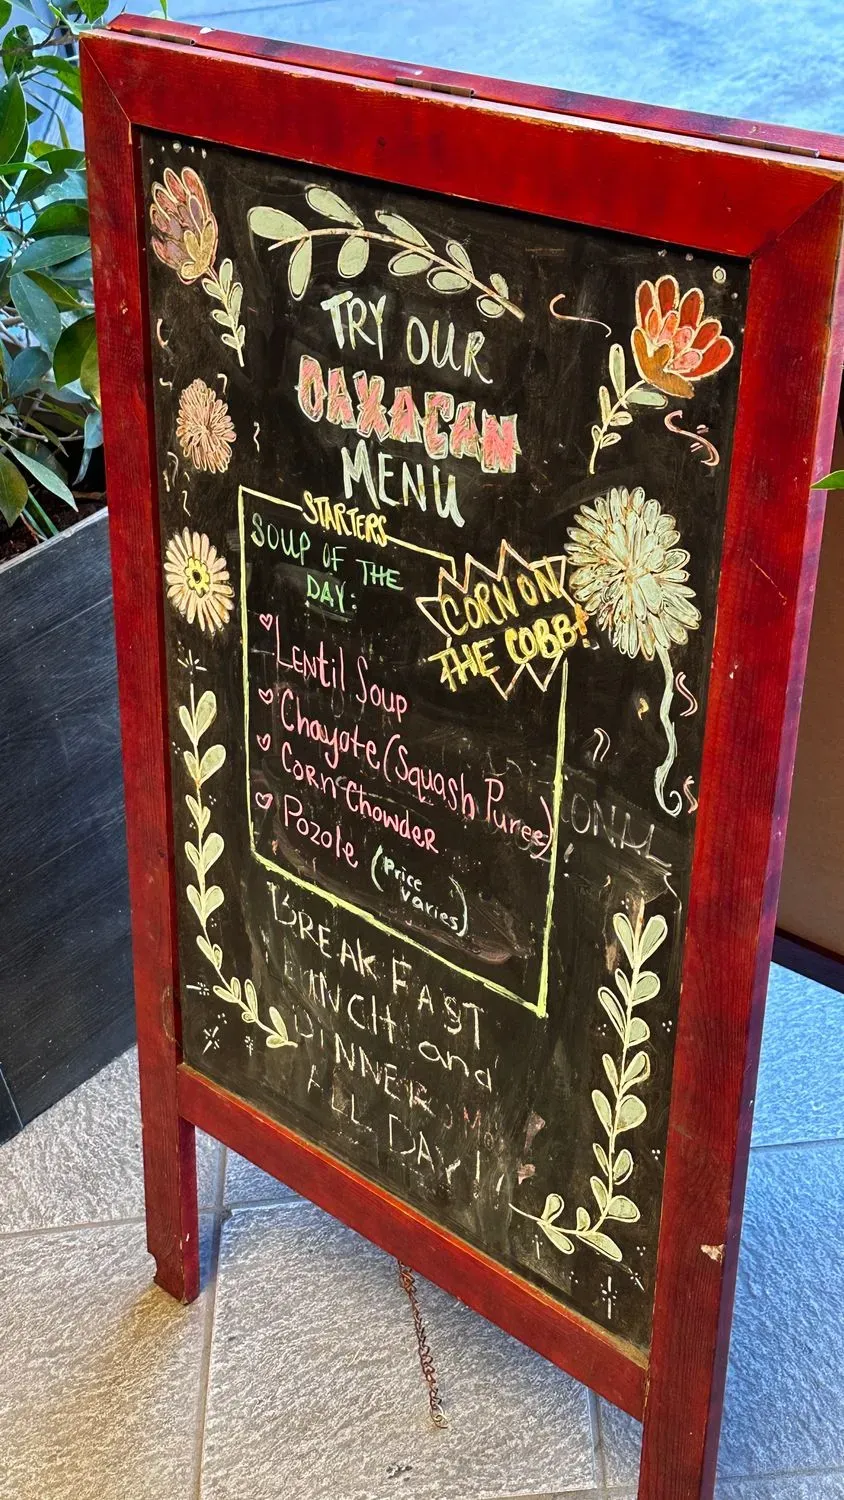 TRY OUR
OAXACAN
MENU
STARTERS
SOUP OF THE
DAY:
CORN ON
THE COBB!
Lentil Soup
Chayote (Squash Puree)
Corn Chowder
Pozole (Price
varies)
BREAKFAST
LUNCH and
DINNER
ALL DAY!